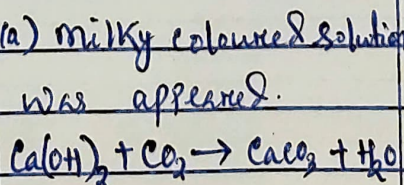 (a) milky coloured solution
was appeared.
Ca(OH)₂ + CO₂ → CaCO₃ + H₂O